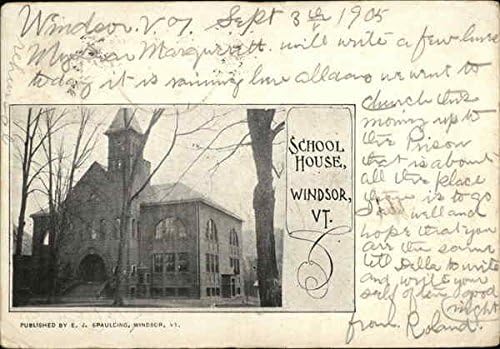 Windsor. Vt. Sept 3th 1905
My Dear Margurett. will write a few lines
today it is raining here all day we went to
church this
morning up to
the Prison
that is about
all the place
there is to go
I am well and
hope that you
are the same
tell Della to write
and write your
self often good
night
from Roland.
SCHOOL
HOUSE,
WINDSOR,
VT.
PUBLISHED BY E. J. SPAULDING, WINDSOR, VT.